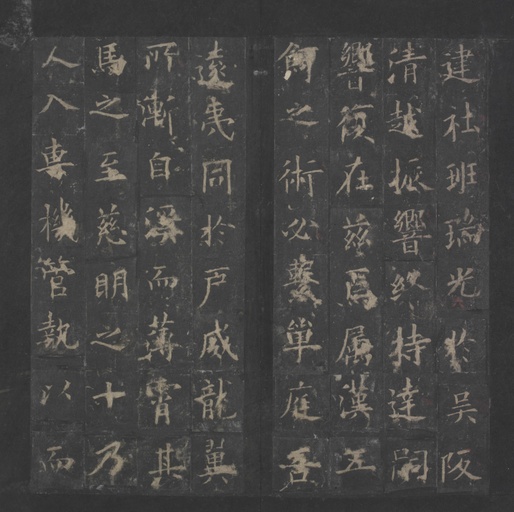 建社班瑞光於吴阪
清越振響終持達嗣
響復在兹昌属漢五
飼之術必藝單庭吞
遠夷同於戸咸龍翼
所漸自溪而薄霄其
馬之至慈明之十乃
人入専機管執以而